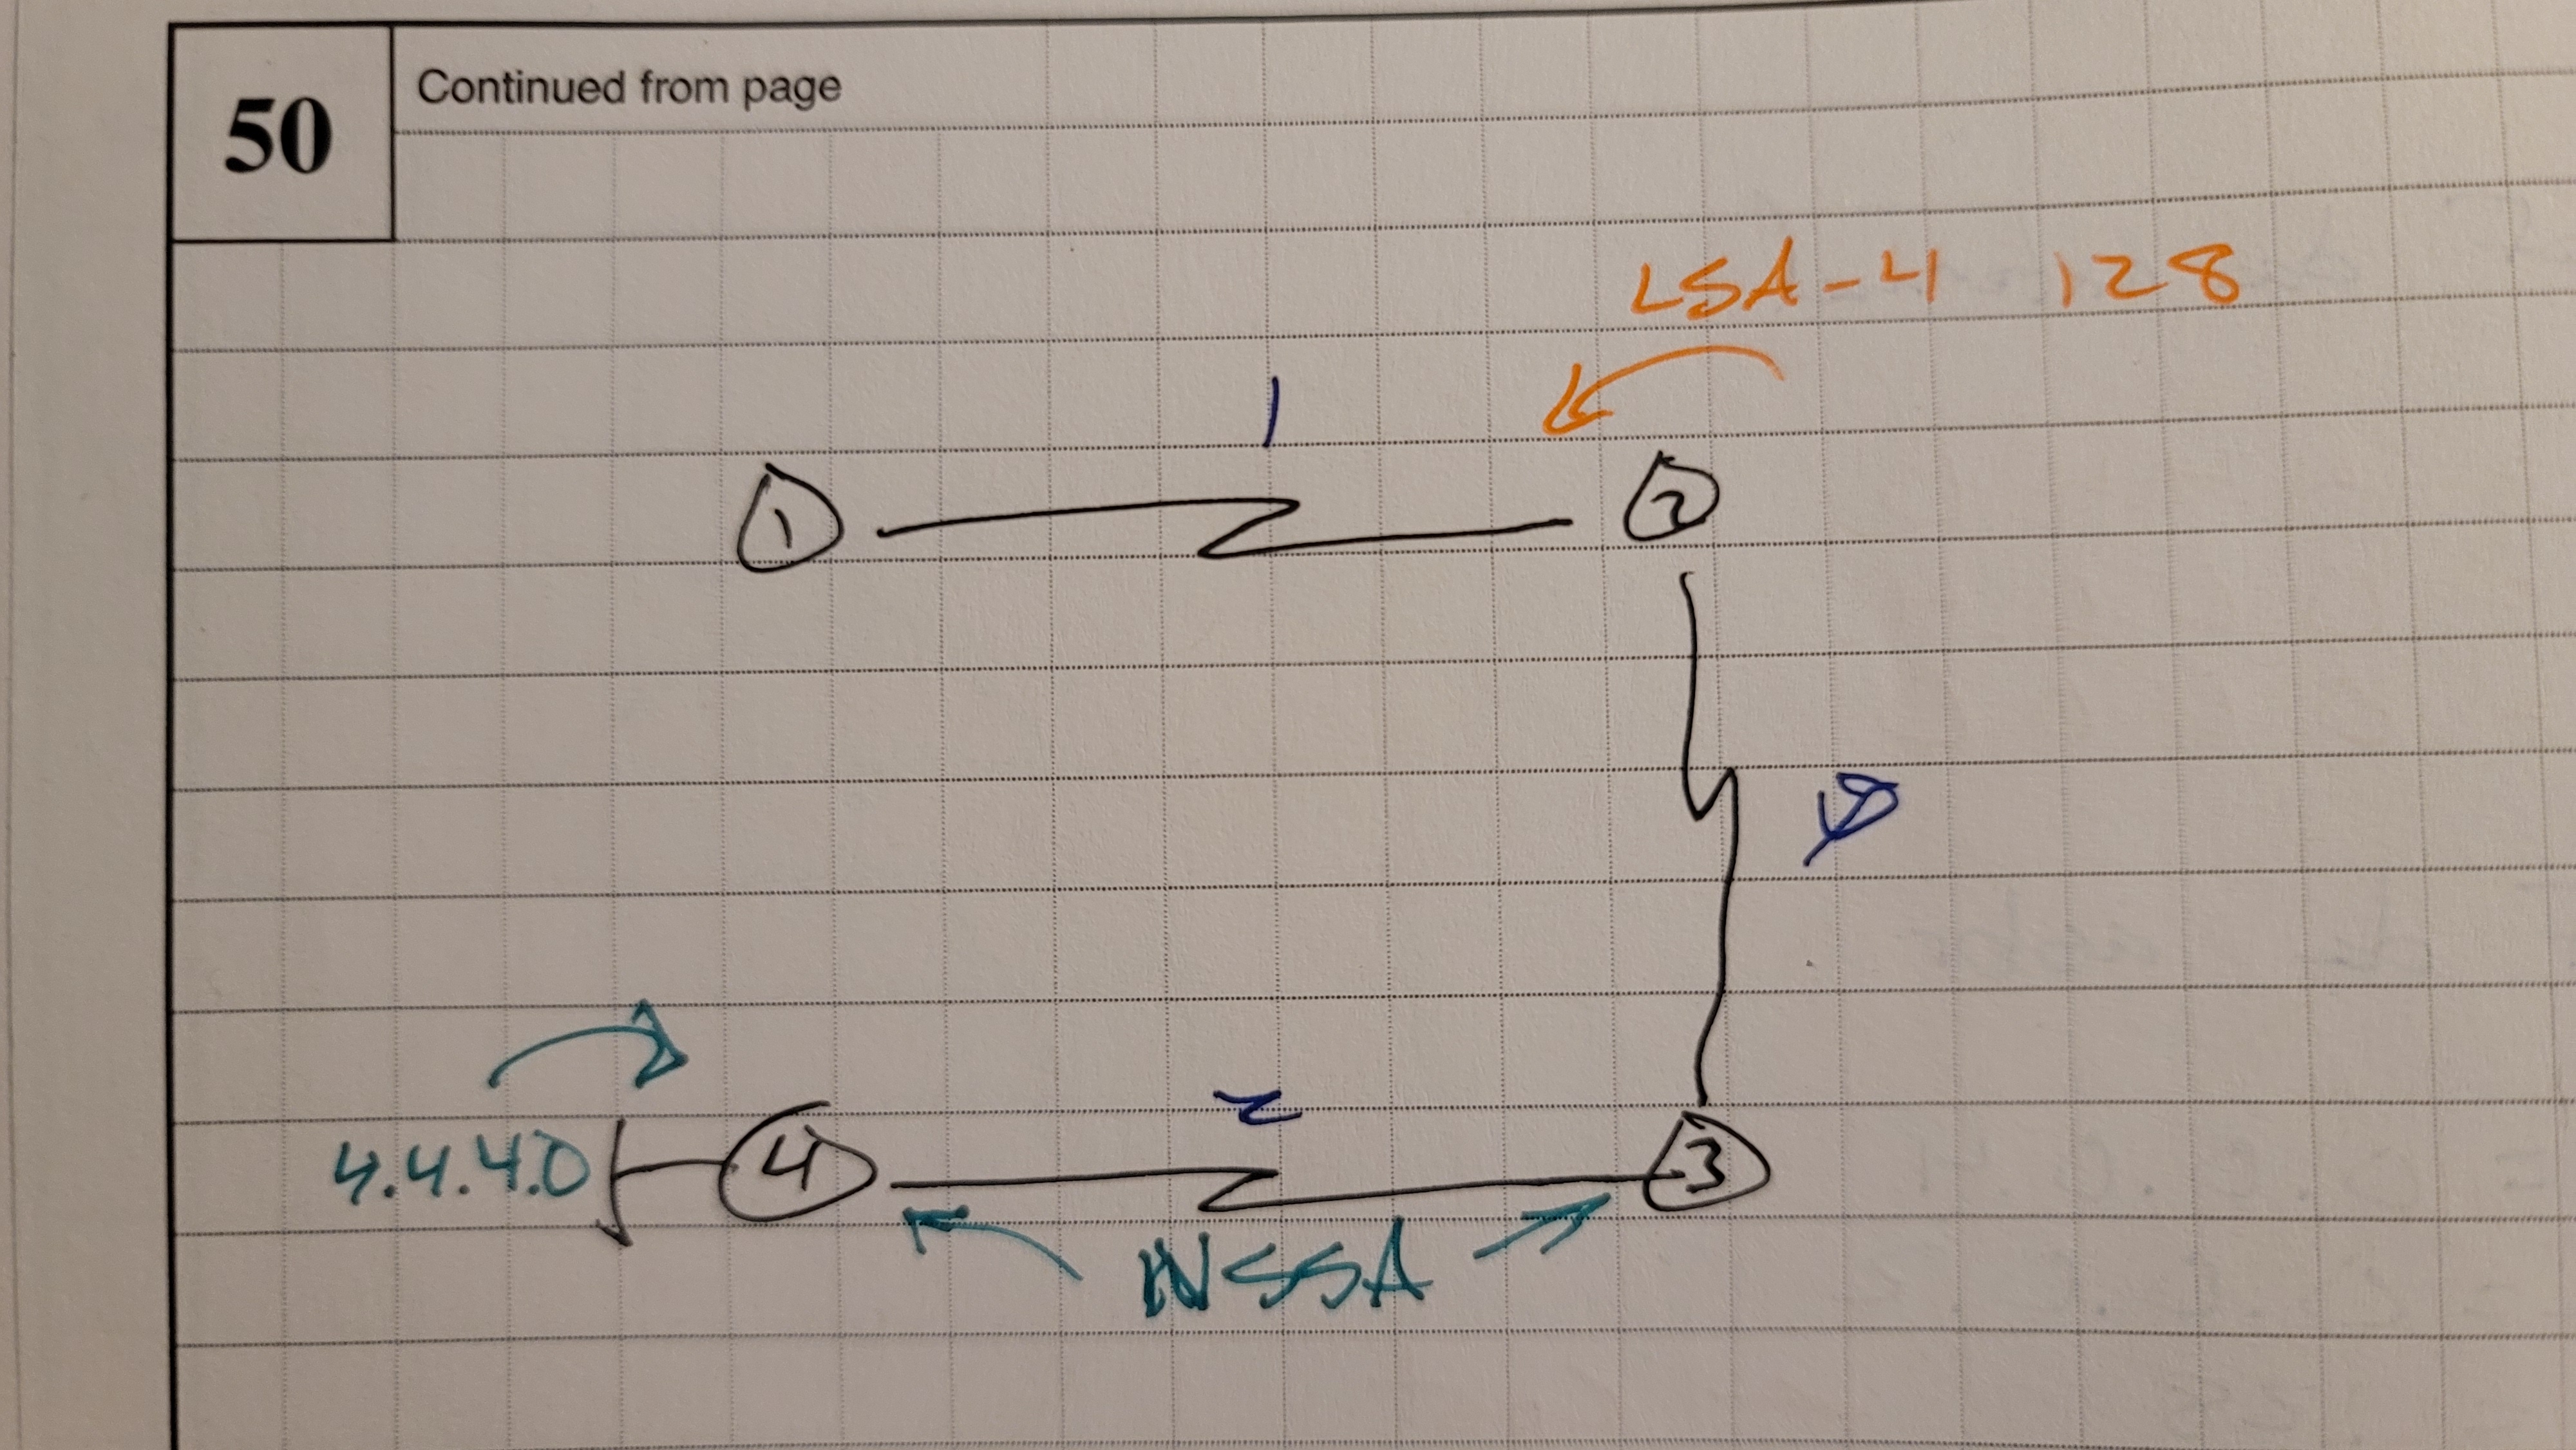 50
Continued from page
LSA-4 128
1
1
2
0
2
4.4.4.0
4
3
NSSA